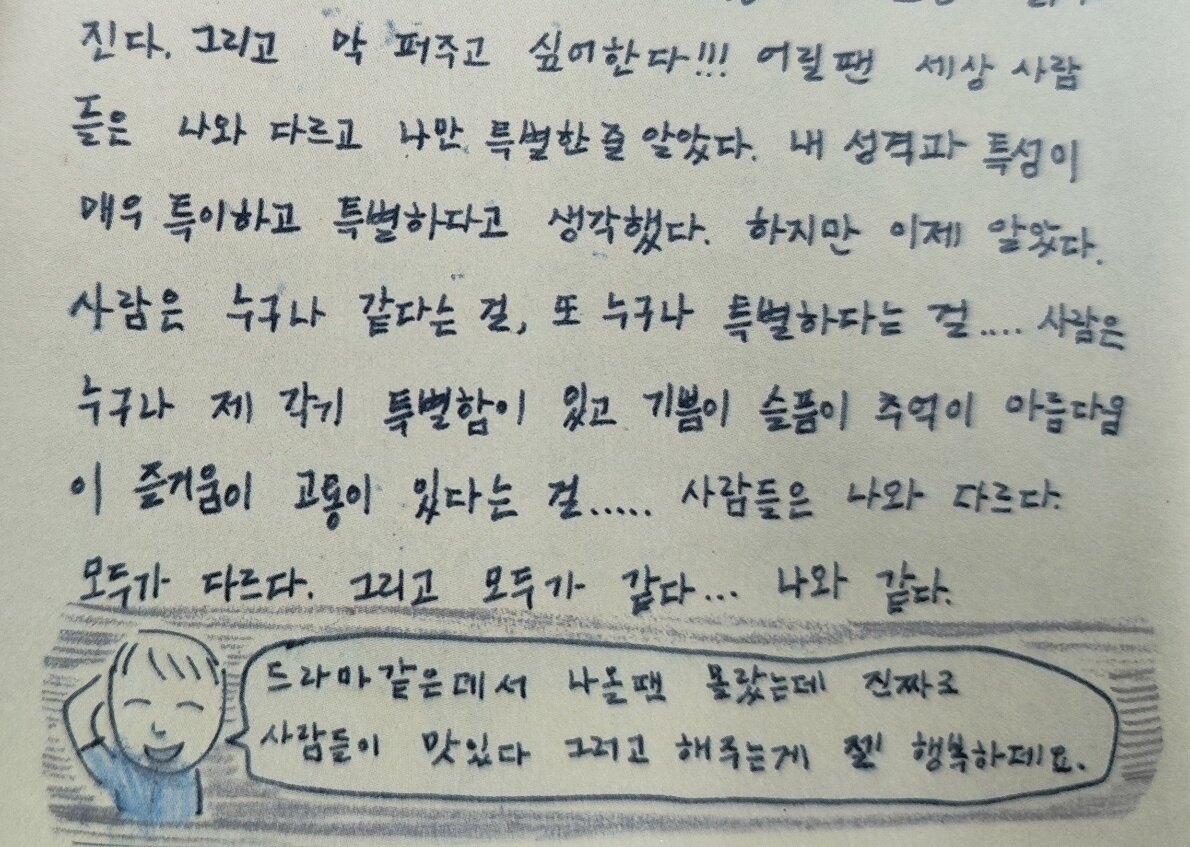 진다. 그리고 막 퍼주고 싶어한다!!! 어릴땐 세상 사람
들은 나와 다르고 나만 특별한 줄 알았다. 내 성격과 특성이
매우 특이하고 특별하다고 생각했다. 하지만 이제 알았다.
사람은 누구나 같다는 걸, 또 누구나 특별하다는 걸.... 사람은
누구나 제 각기 특별함이 있고 기쁨이 슬픔이 추억이 아름다움
이 즐거움이 고통이 있다는 걸..... 사람들은 나와 다르다.
모두가 다르다. 그리고 모두가 같다... 나와 같다.
드라마같은데서 나올땐 몰랐는데 진짜로
사람들이 맛있다 그러고 해주는게 젤 행복하데요.